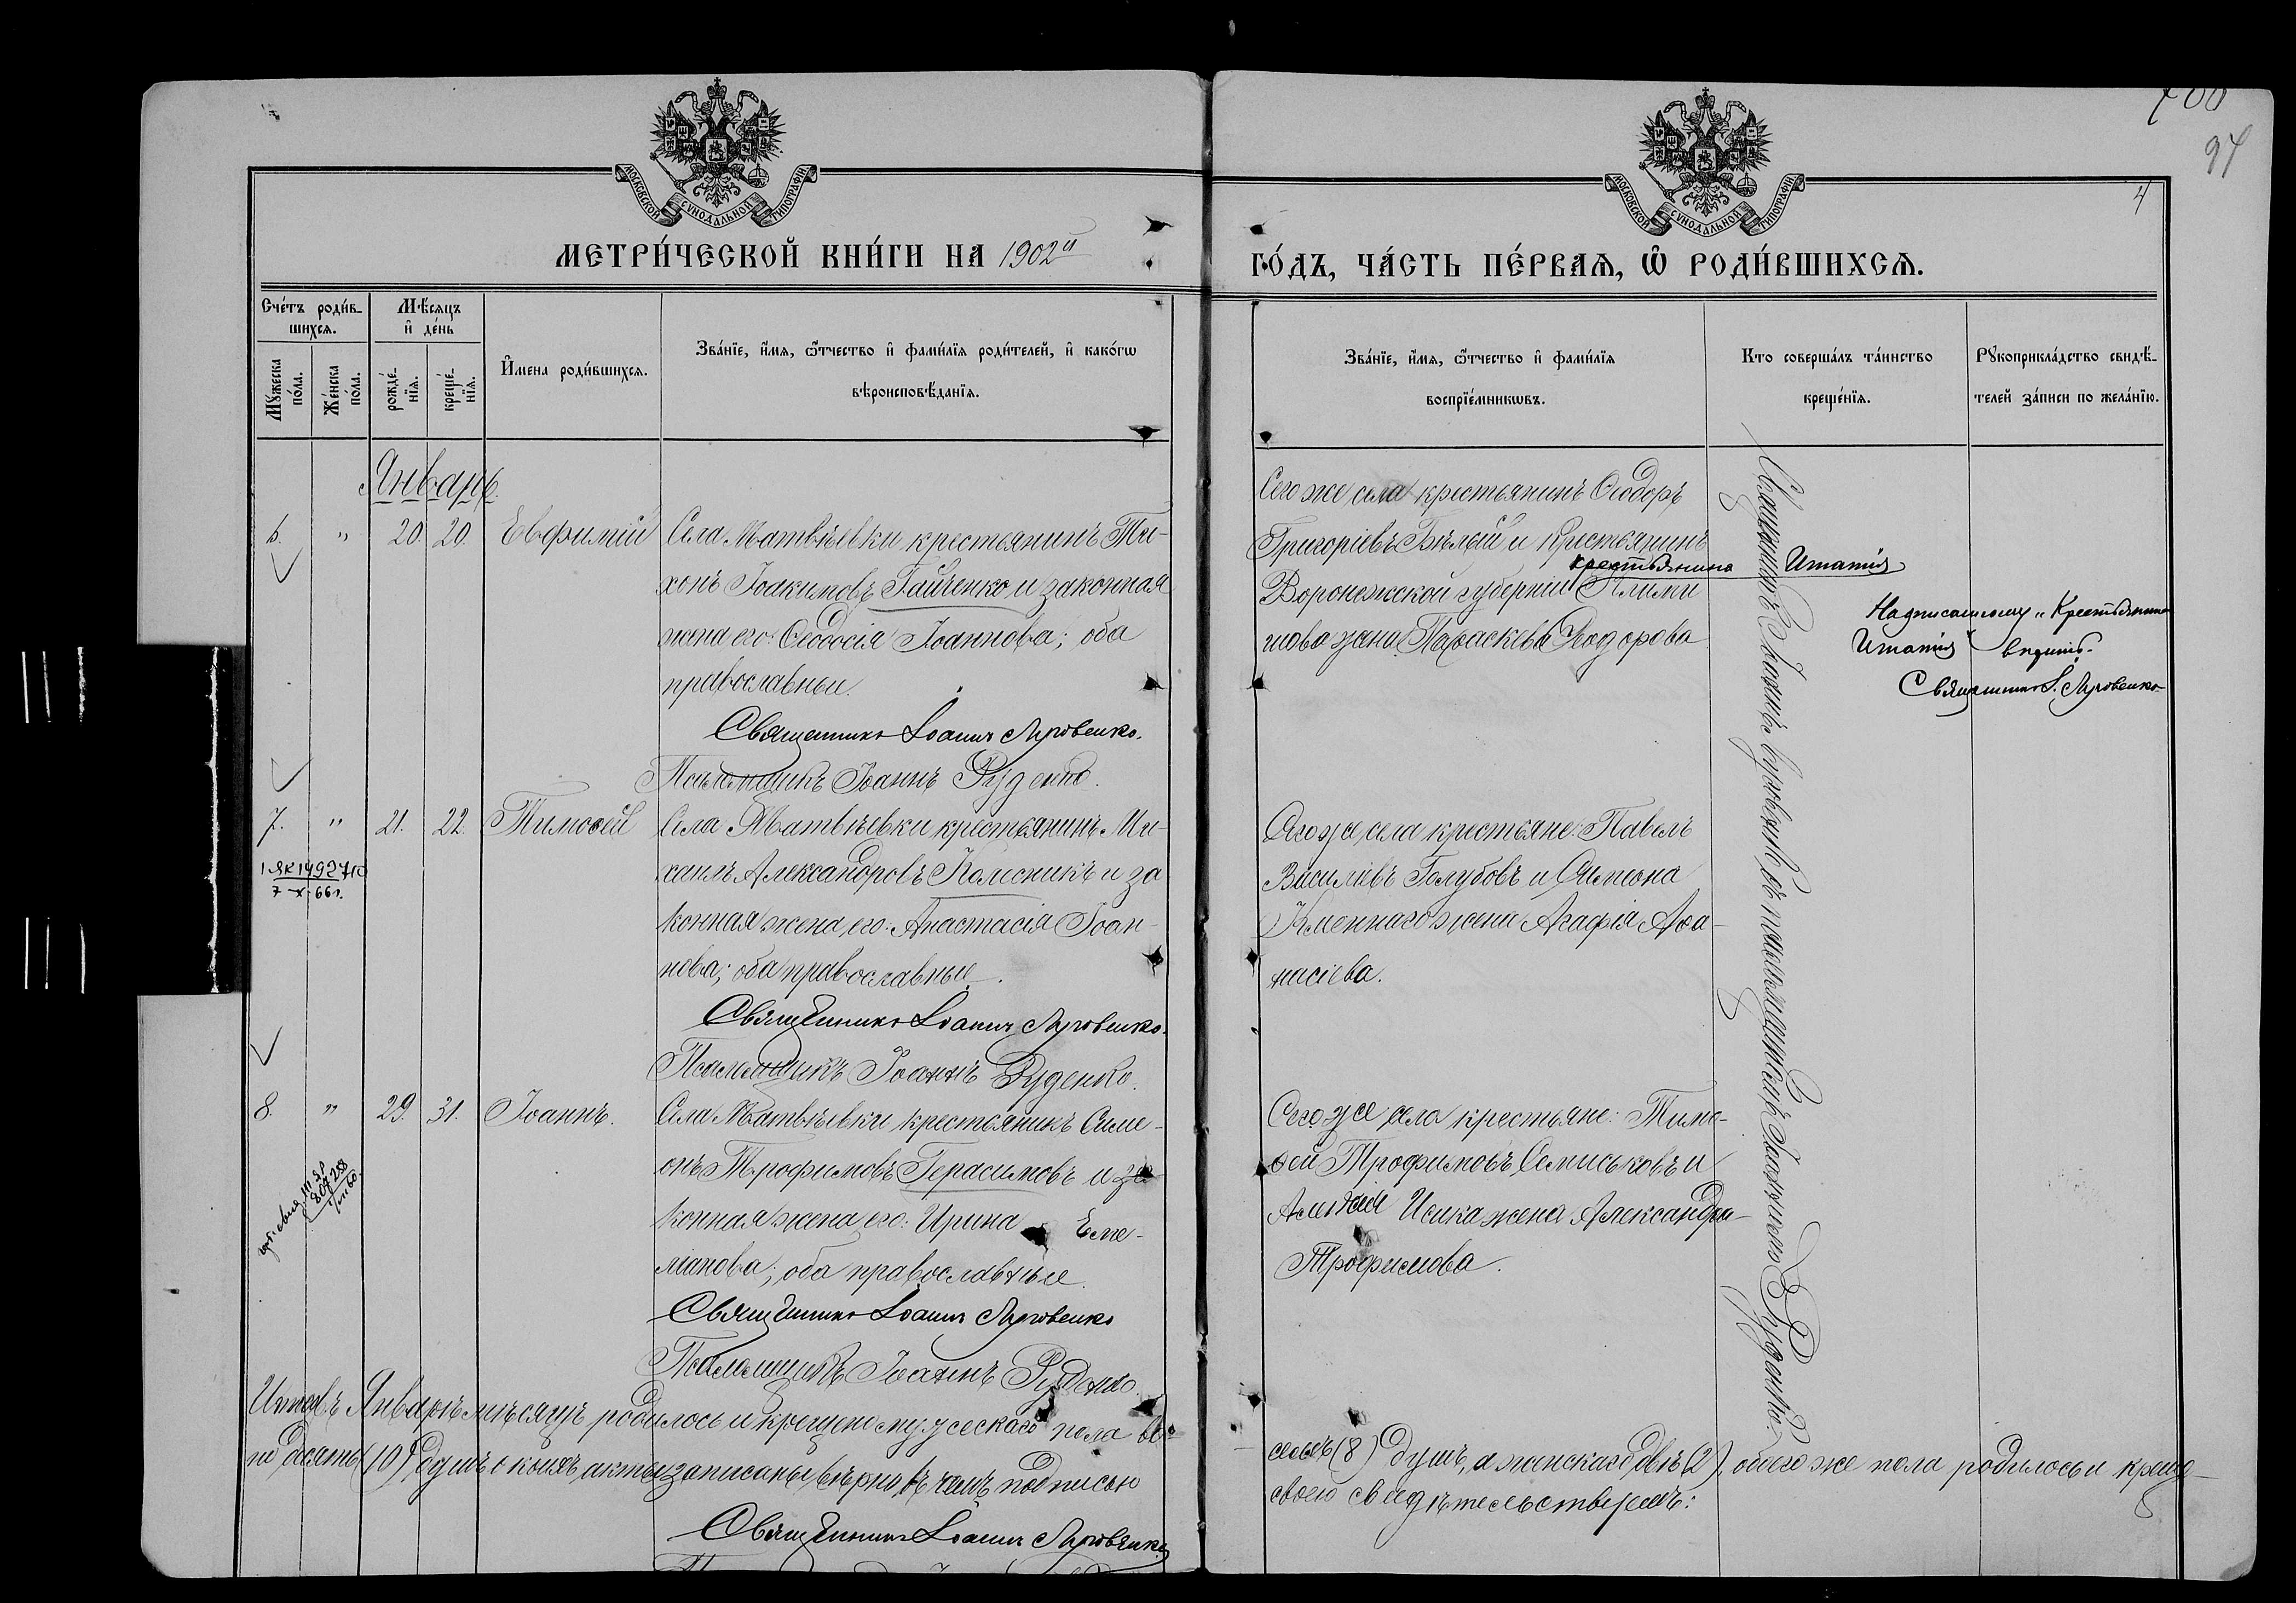 94
4
МОСКОВСКОЙ СѴНОДАЛЬНОЙ ТИПОГРАФІИ
МОСКОВСКОЙ СѴНОДАЛЬНОЙ ТИПОГРАФІИ
МЕТРИ́ЧЕСКОЙ КНИ́ГИ НА 1902й
ГО́ДЪ, ЧА́СТЬ ПЕ́РВАЯ, Ѡ҆ РОДИ́ВШИХСЯ.
Сче́тъ роди́в-
шихся.
Му́жеска по́ла.
Же́нска по́ла.
Мѣ́сяцъ
и҆ де́нь
рожде́-
нїя.
креще́-
нїя.
И҆мена роди́вшихся.
Зва́нїе, и҆́мя, ѻ҆́тчество и҆ фами́лїя роди́телей, и҆ како́гѡ
вѣроисповѣ́данїя.
Зва́нїе, и҆́мя, ѻ҆́тчество и҆ фами́лїя
воспрїе́мникѡвъ.
Кто соверша́лъ та́инство
креще́нїя.
Рꙋкоприкла́дство свидѣ́-
телей за́писи по жела́нїю.
Январь.
6. " 20. 20. Евфимій
Села Матвѣевки крестьянинъ Ти-
хонъ Іоакимовъ Гайченко и законная
жена его Ѳеодосія Іоаннова; оба
православные.
Священникъ Іоаннъ Луговенко.
Псаломщикъ Іоаннъ Руденко.
Сего же села крестьянинъ Ѳеодоръ
Григоріевъ Бѣлый и крестьянина
крестьянина Игнатія
Воронежской губерніи Клими
нова жена Параскева Ѳеодорова
Надписанному "Крестьянина
Игнатія" вѣрить.
Священникъ І. Луговенко
7. " 21. 22. Тимоѳей
1 ЯК 1492710
7-X-66г.
Села Матвѣевки крестьянинъ Ми-
хаилъ Александровъ Колесникъ и за
конная жена его: Анастасія Іоан-
нова; оба православные.
Священникъ Іоаннъ Луговенко.
Псаломщикъ Іоаннъ Руденко.
Сего же села крестьяне: Павелъ
Василіевъ Голубовъ и Симеона
жена Агафія Аѳа-
насіева.
8. " 29. 31. Іоаннъ.
Села Матвѣевки крестьянинъ Симе-
онъ Трофимовъ Герасимовъ и за
конная жена его: Ирина Еме-
ліанова; оба православные.
Священникъ Іоаннъ Луговенко
Псаломщикъ Іоаннъ Руденко.
Сего же села крестьяне: Тимо-
ѳей Трофимовъ Семиськовъ и
Алексія Исика жена Александра
Трофимова.
Священникъ Іоаннъ Луговенко съ псаломщикомъ Іоанномъ Руденко.
Итого въ Январѣ мѣсяцѣ родилось и крещено мужескаго пола во-
семь (8) душъ, а женскаго двѣ (2), обоего же пола родилось и креще-
но десять (10) душъ о коихъ акты записаны вѣрно, въ чемъ подписью
своею свидѣтельствуемъ:
Священникъ Іоаннъ Луговенко